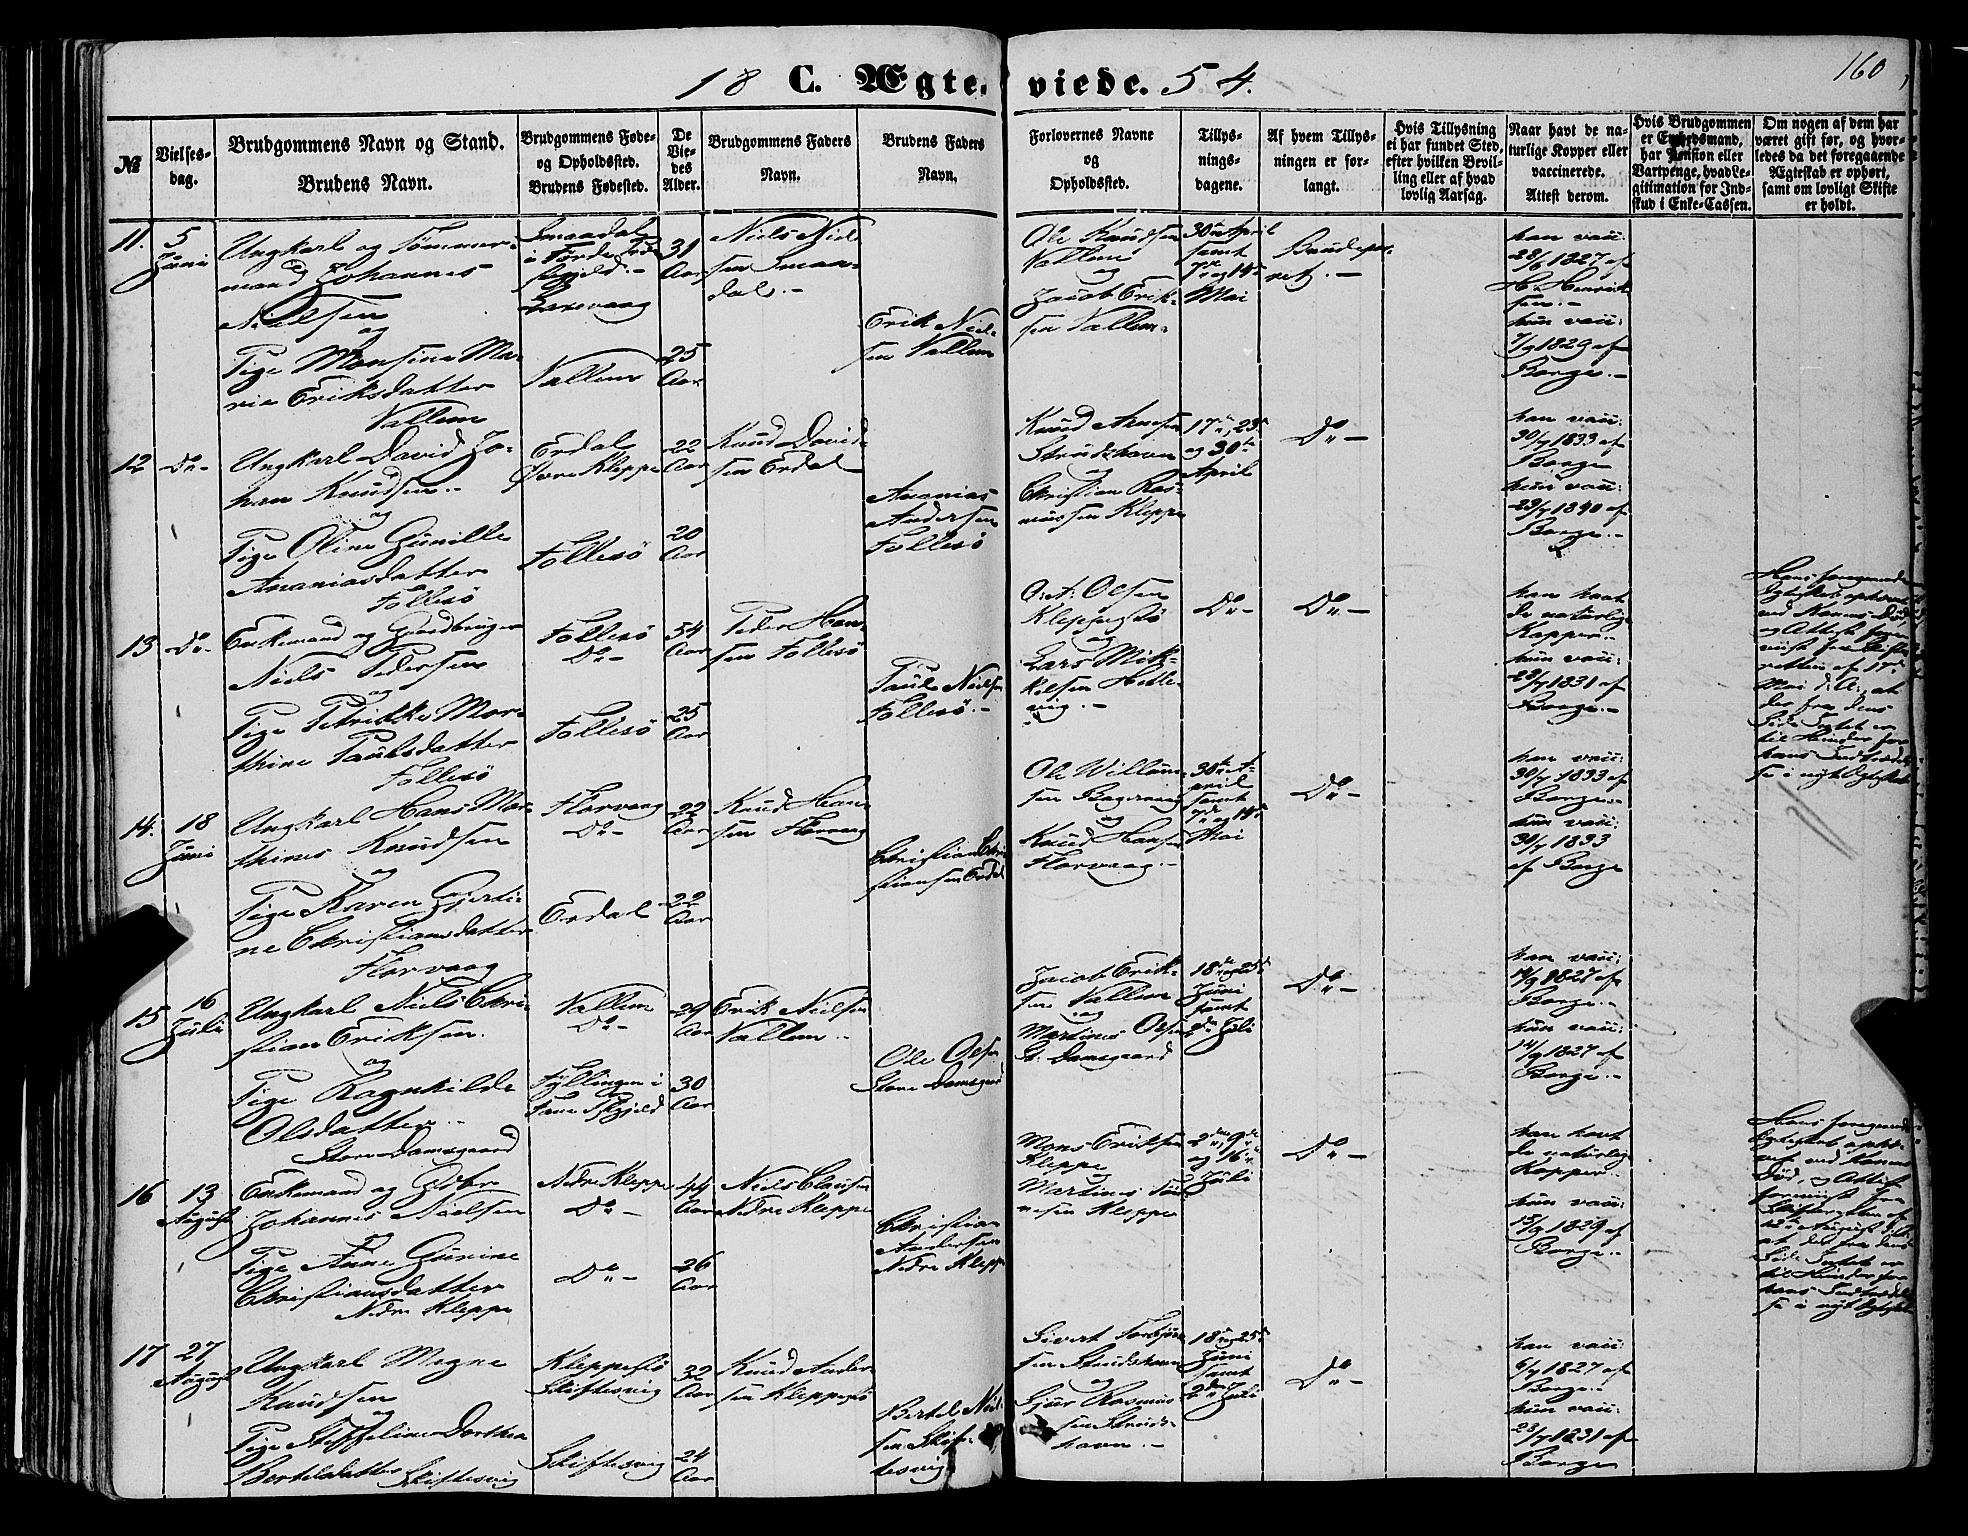 160
18 C. Ægte-viede. 54.
№
Vielses-
dag.
Brudgommens Navn og Stand.
Brudens Navn.
Brudgommens Føde-
og Opholdssted.
Brudens Fødested.
De
Vie-
des
Alder.
Brudgommens Faders
Navn.
Brudens Faders
Navn.
Forlovernes Navne
og
Opholdssted.
Tillys-
nings-
dagene.
Af hvem Tillys-
ningen er for-
langt.
Hvis Tillysning
ei har fundet Sted,
efter hvilken Bevil-
ling eller af hvad
lovlig Aarsag.
Naar havt de na-
turlige Kopper eller
vaccinerede.
Attest derom.
Hvis Brudgommen
er Embedsmand,
har Pension eller
Vartpenge, hvad Le-
gitimation for Ind-
skud i Enke-Cassen.
Om nogen af dem har
været gift før, og hvor-
ledes da det foregaaende
Ægteskab er ophørt,
samt om lovligt Skifte
er holdt.
11.
5
Juni
Ungkarl og Tømmer-
mand Johannes
Nielsen
og
Pige Monsine Ma-
rie Eriksdatter
Vallem
Smaadal
i Førde
Vallem
31
Aar
25
Aar
Niels Niel
sen Smaa-
dal.-
Erik Niel-
sen Vallem
Ole Knudsen
Vallem
og
Jacob Erik-
sen Vallem
30te April
samt
7de og 14de
Mai
Brudepar-
ret.-
han vacc:
28/6 1827 af
H. Henrik
sen.-
hun vacc:
7/9 1829 af
Borge.-
12
Do-
Ungkarl David Jo-
han Knudsen.-
og
Pige Oline Gunille
Ananiasdatter
Follesö
Erdal
Øvre Kleppe
Follesö
22
Aar
20
Aar
Knud David-
sen Erdal
Ananias
Andersen
Follesö
Knud Arnesen
Strudshavn
og
Christian Ras-
mussen Kleppe
17de, 23de
og 30te
April
Do-
han vacc:
30/7 1833 af
Borge
hun vacc:
23/7 1840 af
Borge.-
13
Do-
Enkemand og Gaardbruger
Niels Pedersen
og
Pige Petrikke Mar-
thine Paulsdatter
Follesö
Follesö
Do-
Follesö
54
Aar
25
Aar
Peder Han-
sen Follesö
Paul Nielsen
Follesö.-
O. A. Olsen
Kleppestö
og
Lars Mik-
kelsen Hetle-
vig.-
Do-
Do-
han havt
de naturlige
Kopper.-
hun vacc:
29/7 1831 af
Borge.-
Hans foregaaende
Ægteskab ophævet
ved Konens Död,
og Attest frem-
viist fra Skifte-
retten af 17de
Mai d: A:, at
der fra dens
Side Intet er
til Hinder for
hans Indtrædel-
se i nyt Ægteskab
14.
18
Juni
Ungkarl Hans Mar-
thines Knudsen
og
Pige Karen Gjerti-
ne Christiansdatter
Florvaag
Florvaag
Do-
Erdal
22
Aar
22
Aar
Knud Han-
sen Florvaag
Christian Chri-
stiansen Erdal
Ole Willum-
sen
og
Knud Hansen
Florvaag.-
30te A-
pril
samt
7de og 14de
Mai
Do-
han vacc:
30/7 1833 af
Borge.-
hun vacc:
30/7 1833
af Borge
15
16
Juli
Ungkarl Niels Chri-
stian Eriksen.
og
Pige Ragnhilde
Olsdatter.-
Store Damsgaard
Vallem
Do-
Fyllingen i
Fane Pgjeld
29
Aar
30
Aar
Erik Nielsen
Vallem.-
Ole Olsen
Store Damsgaard
Jacob Erik-
sen Vallem
og
Martinus Olsen
St: Damsgaard
18de og 25de
Juni
samt
2den Juli
Do-
han vacc:
14/9 1827 af
Borge.-
hun vacc:
14/9 1827 af
Borge.-
16
13
August
Enkemand og Gdbr
Johannes Nielsen
Pige Anne Gurine
Christiansdatter
Nedre Kleppe
Nedre Kleppe
Do-
Do-
44
Aar
26
Aar
Niels Clausen
Nedre Kleppe
Christian
Andersen
Nedre Kleppe
Mons Eriksen
Kleppe
Martinus Tön-
nesen Kleppe
2den, 9de
og 16de
Juli
Do-
han havt
de naturlige
Kopper.-
hun vacc:
13/9 1829 af
Borge.-
Hans foregaaende
Ægteskab ophæ-
vet ved Konens
Död, og Attest
fremviist fra
Skifteretten af
12te August d: A:
at der fra dens
Side Intet er
til Hinder for
hans Indtrædel-
se i nyt Ægteskab
17
27
August
Ungkarl Magne
Knudsen
og
Pige Steffeline Dorthea
Bertelsdatter Skiftesvig
Kleppestö
Skiftesvig
Skiftesvig
32
Aar
24
Aar
Knud Ander-
sen Kleppestö
Bertel Niel-
sen Skif-
tesvig
Sivert Torbjörn-
sen Strudshavn
og
Gjær Rasmus-
sen Struds-
havn.-
18de og 25de
Juni
samt
2den Juli
Do-
han vacc:
6/7 1827 af
Borge.-
hun vacc:
23/7 1831 af
Borge